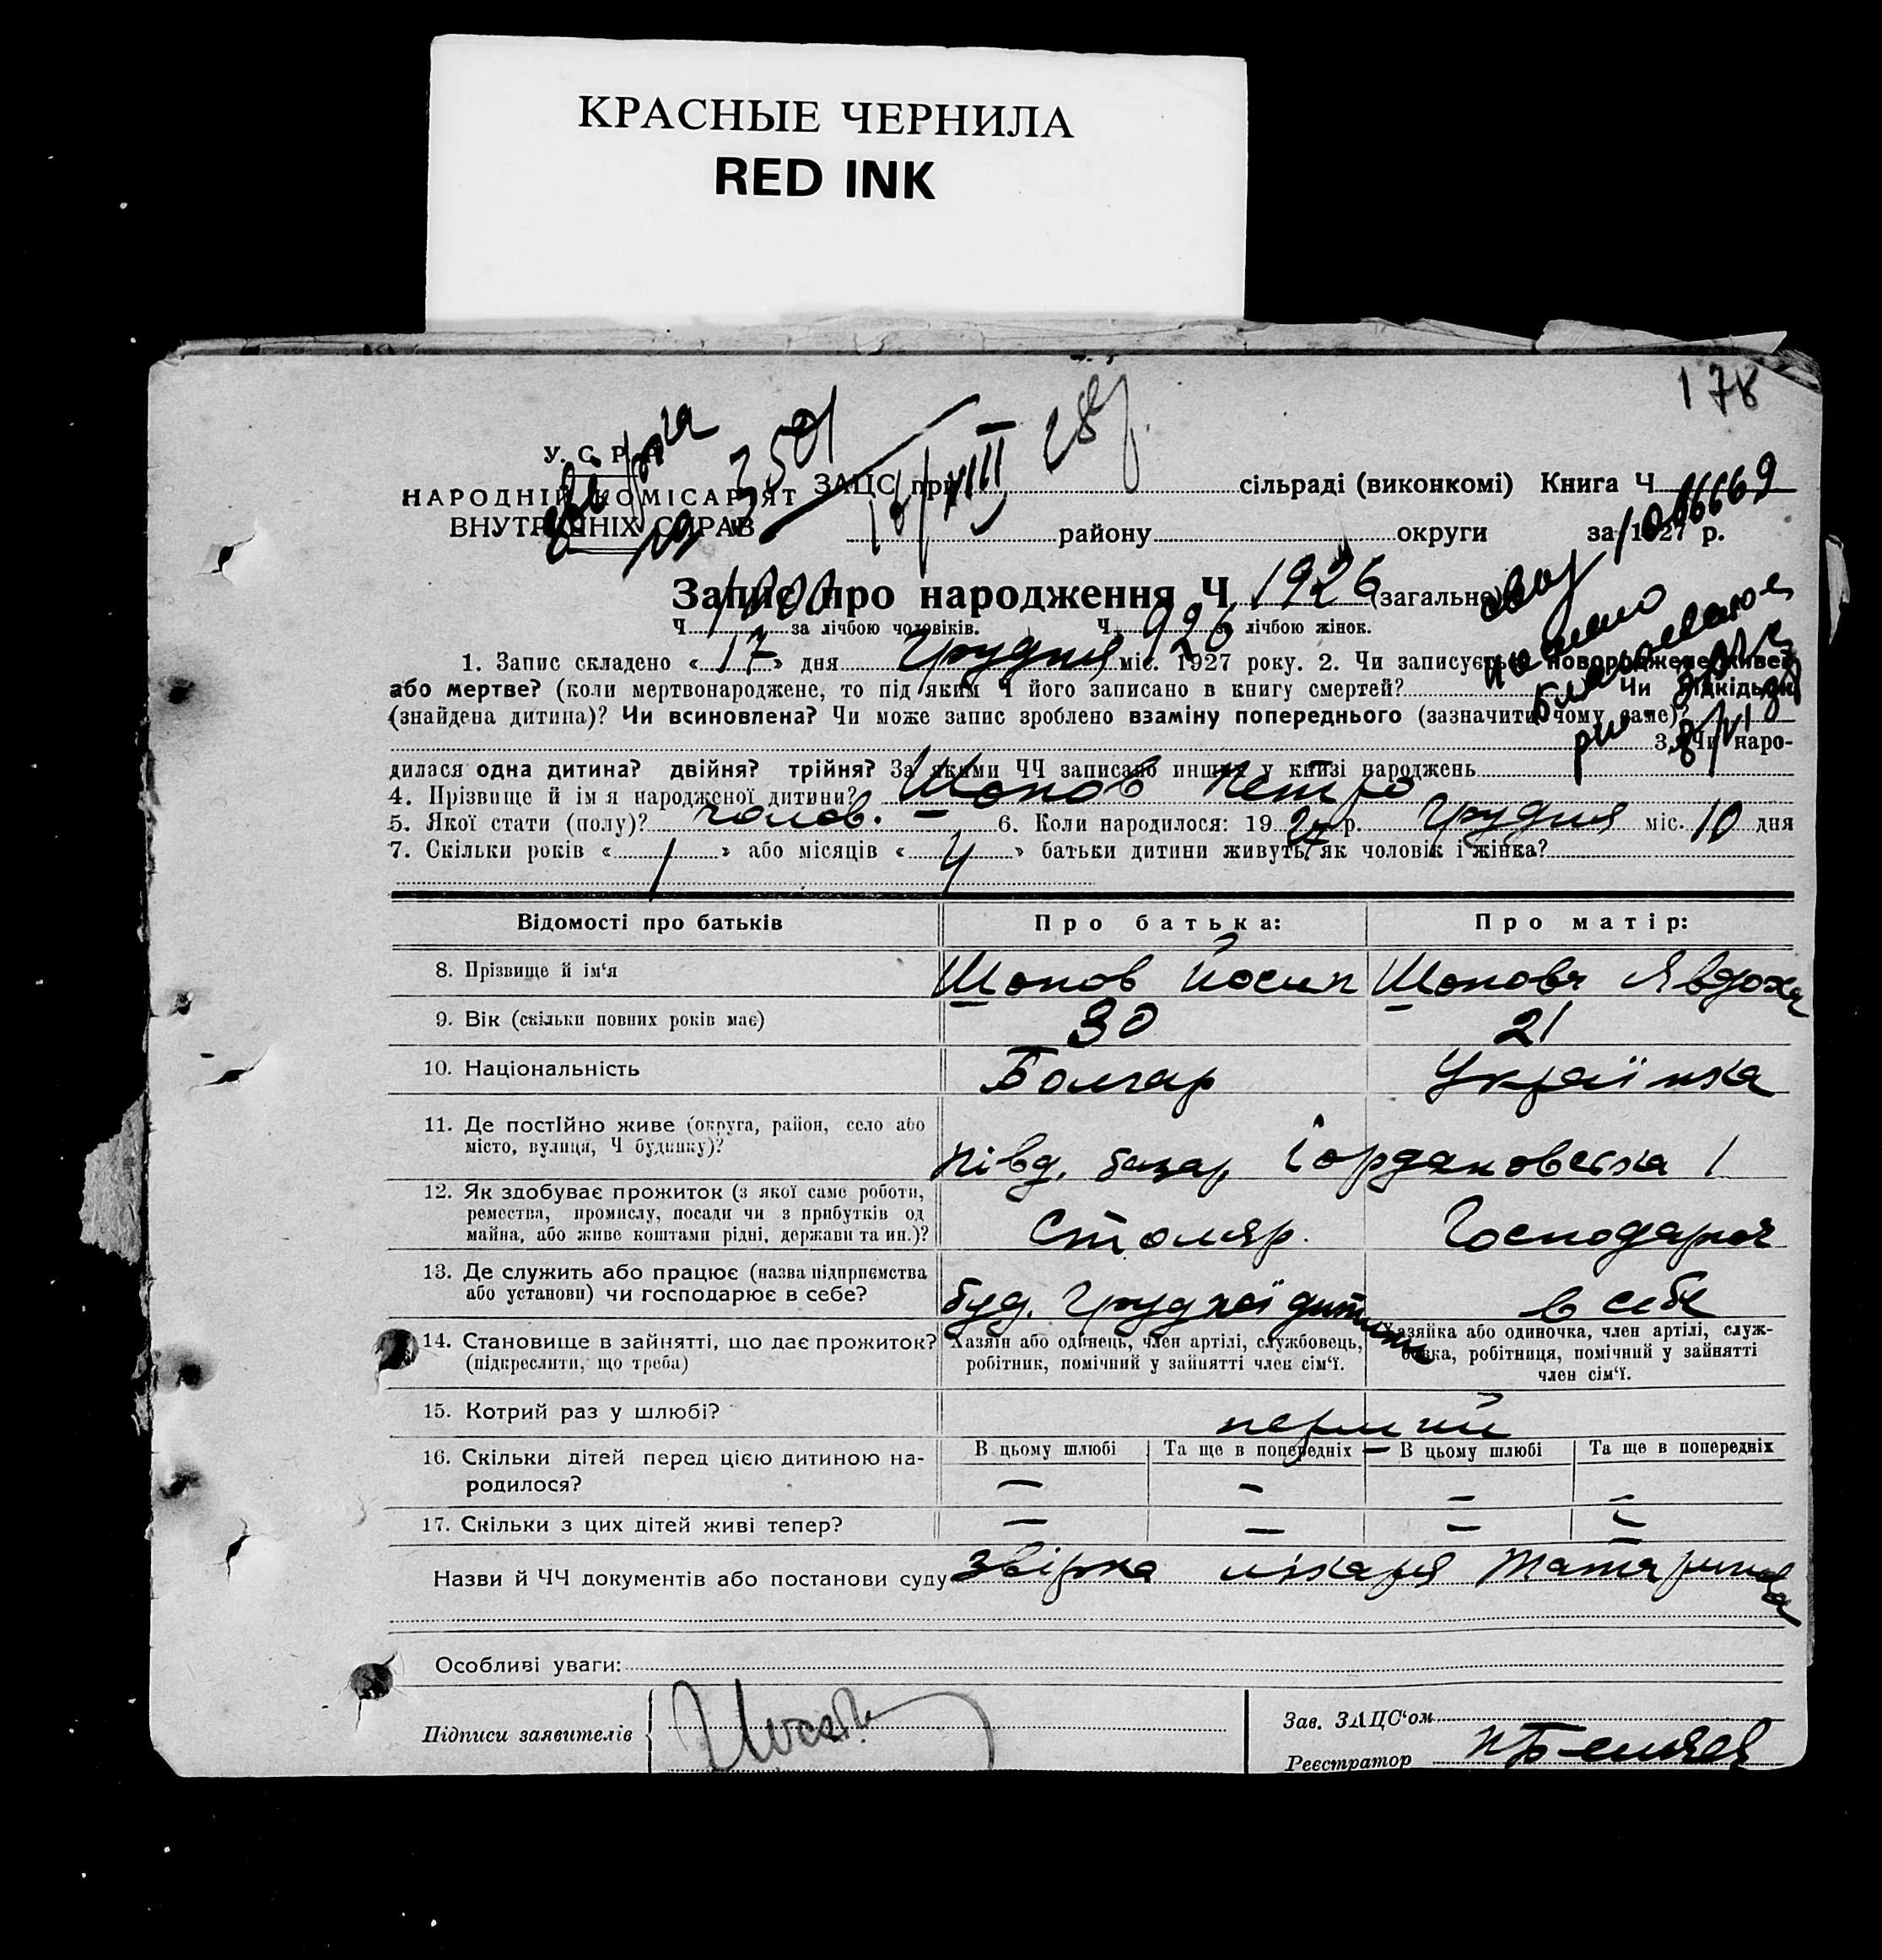 КРАСНЫЕ ЧЕРНИЛА
RED INK
178
У. С. Р. Р.
НАРОДНІЙ КОМІСАРІЯТ
ВНУТРІШНІХ СПРАВ
3501
ЗАЦС при сільраді (виконкомі) Книга Ч.
району округи за 1927 р.
Запис про народження Ч. 1926 (загальне)
Ч. 1000 за лічбою чоловіків. Ч. 926 за лічбою жінок.
1. Запис складено « 17 » дня Грудня міс. 1927 року. 2. Чи записується новороджене живе?
або мертве? (коли мертвонароджене, то під яким Ч його записано в книгу смертей? Чи підкідьок
(знайдена дитина)? Чи всиновлена? Чи може запис зроблено взаміну попереднього (зазначити чому саме)?
3. Чи наро-
дилася одна дитина? двійня? трійня? За якими ЧЧ записано инших у книзі народжень
4. Прізвище й ім я народженої дитини? Шопов Петро
5. Якої стати (полу)? чолов. 6. Коли народилося: 19 27 р. Грудня міс. 10 дня
7. Скільки років « 1 » або місяців « 4 » батьки дитини живуть, як чоловік і жінка?
Відомості про батьків Про батька: Про матір:
8. Прізвище й ім'я Шопов Йосип Шопова Явдоха
9. Вік (скільки повних років має) 30 21
10. Національність Болгар Українка
11. Де постІйно живе (округа, район, село або
місто, вулиця, Ч будинку)? Півд. базар Іордановська 1
12. Як здобуває прожиток (з якої саме роботи,
ремества, промислу, посади чи з прибутків од
майна, або живе коштами рідні, держави та ин.)? Столяр. Господарюч
13. Де служить або працює (назва підприємства
або установи) чи господарює в себе? буд. Грудної дитини в себе
14. Становище в зайнятті, що дає прожиток?
(підкреслити, що треба)
Хазяїн або одинець, член артілі, службовець,
робітник, помічний у зайнятті член сім'ї.
Хазяйка або одиночка, член артілі, служ-
бовка, робітниця, помічний у зайнятті
член сім'ї.
15. Котрий раз у шлюбі? перший
16. Скільки дітей перед цією дитиною на-
родилося?
В цьому шлюбі Та ще в попередніх В цьому шлюбі Та ще в попередніх
— — — —
17. Скільки з цих дітей живі тепер? — — — —
Назви й ЧЧ документів або постанови суду Звірка лікаря Татаринова
Особливі уваги:
Підписи заявителів
Зав. ЗАЦС'ом
Реєстратор